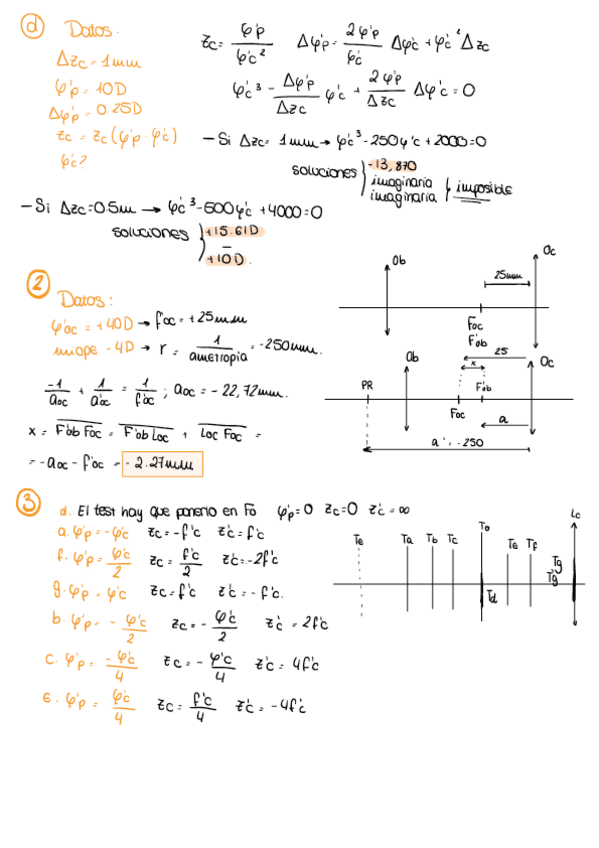 d Datos.
Δzc = 1mm
φ'p = 10D
Δφ'p = 0.25D
zc = zc(φ'p · φ'c)
φ'c?
zc = φ'p / φ'c² Δφ'p = 2φ'p / φ'c Δφ'c + φ'c² Δzc
φ'c³ - Δφ'p / Δzc φ'c + 2φ'p / Δzc Δφ'c = 0
- Si Δzc = 1mm → φ'c³ - 250φ'c + 2000 = 0
soluciones
-13,870
imaginaria
imaginaria
imposible
- Si Δzc = 0.5m → φ'c³ - 500φ'c + 4000 = 0
soluciones
+15.61D
-
+10D.
2 Datos:
φ'oc = +40D → f'oc = +25mm
miope - 4D → r = 1 / ametropia = -250mm.
-1 / aoc + 1 / a'oc = 1 / f'oc ; aoc = -22,72mm.
x = F'ob Foc = F'ob Loc + Loc Foc =
= -aoc - f'oc = -2.27mm
Ob
Oc
25mm
Foc
F'ob
Ob
25
Oc
x
PR
F'ob
Foc
a
a' = -250
3 d. El test hay que ponerlo en Fo φ'p = 0 zc = 0 z'c = ∞
a. φ'p = -φ'c zc = -f'c z'c = f'c
f. φ'p = φ'c / 2 zc = f'c / 2 z'c = -2f'c
g. φ'p = φ'c zc = f'c z'c = -f'c.
b. φ'p = - φ'c / 2 zc = - φ'c / 2 z'c = 2f'c
c. φ'p = -φ'c / 4 zc = - φ'c / 4 z'c = 4f'c
e. φ'p = φ'c / 4 zc = f'c / 4 z'c = -4f'c
Lc
Te
Ta
Tb
Tc
To
Te
Tf
Tg
Tg
Td